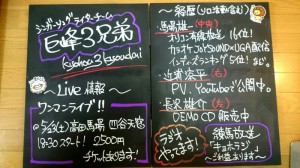 シンガーソングライターチーム
巨峰3兄弟
kyohou3kyoudai
〜Live 情報〜
ワンマンライブ!!
@5/23(土)高田馬場 四谷天窓
18:30 スタート! 2500円
チケットあります!
〜経歴(ソロ活動含む)
馬場雄一(中央)
オリコン有線放送 16位!
カラオケJOYSOUND×UGA配信
インディーズランキング5位!
近浦崇平(右)
P.V. Youtubeで公開中。
長沢雄介(左)
DEMO CD 販売中
ラジオ
やってます!
練馬放送
"キョホラジ"